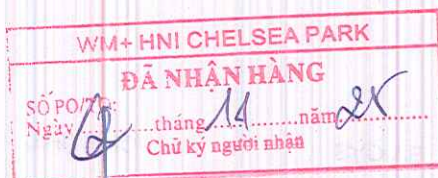 WM+ HNI CHELSEA PARK
ĐÃ NHẬN HÀNG
SỐ PO/
Ngày ........ tháng 11 ........ năm 25 ........
Chữ ký người nhận